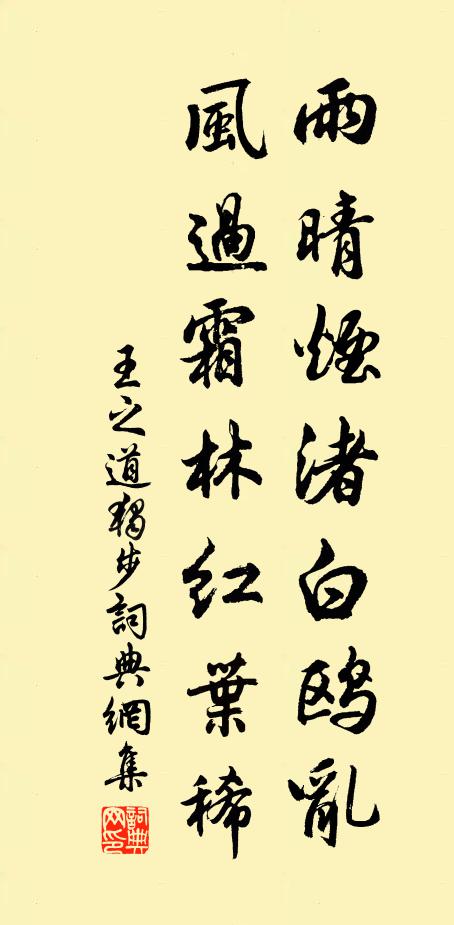 雨晴煙渚白鸥亂
風過霜林紅葉稀
王之道獨步詞典網集
詞典网印